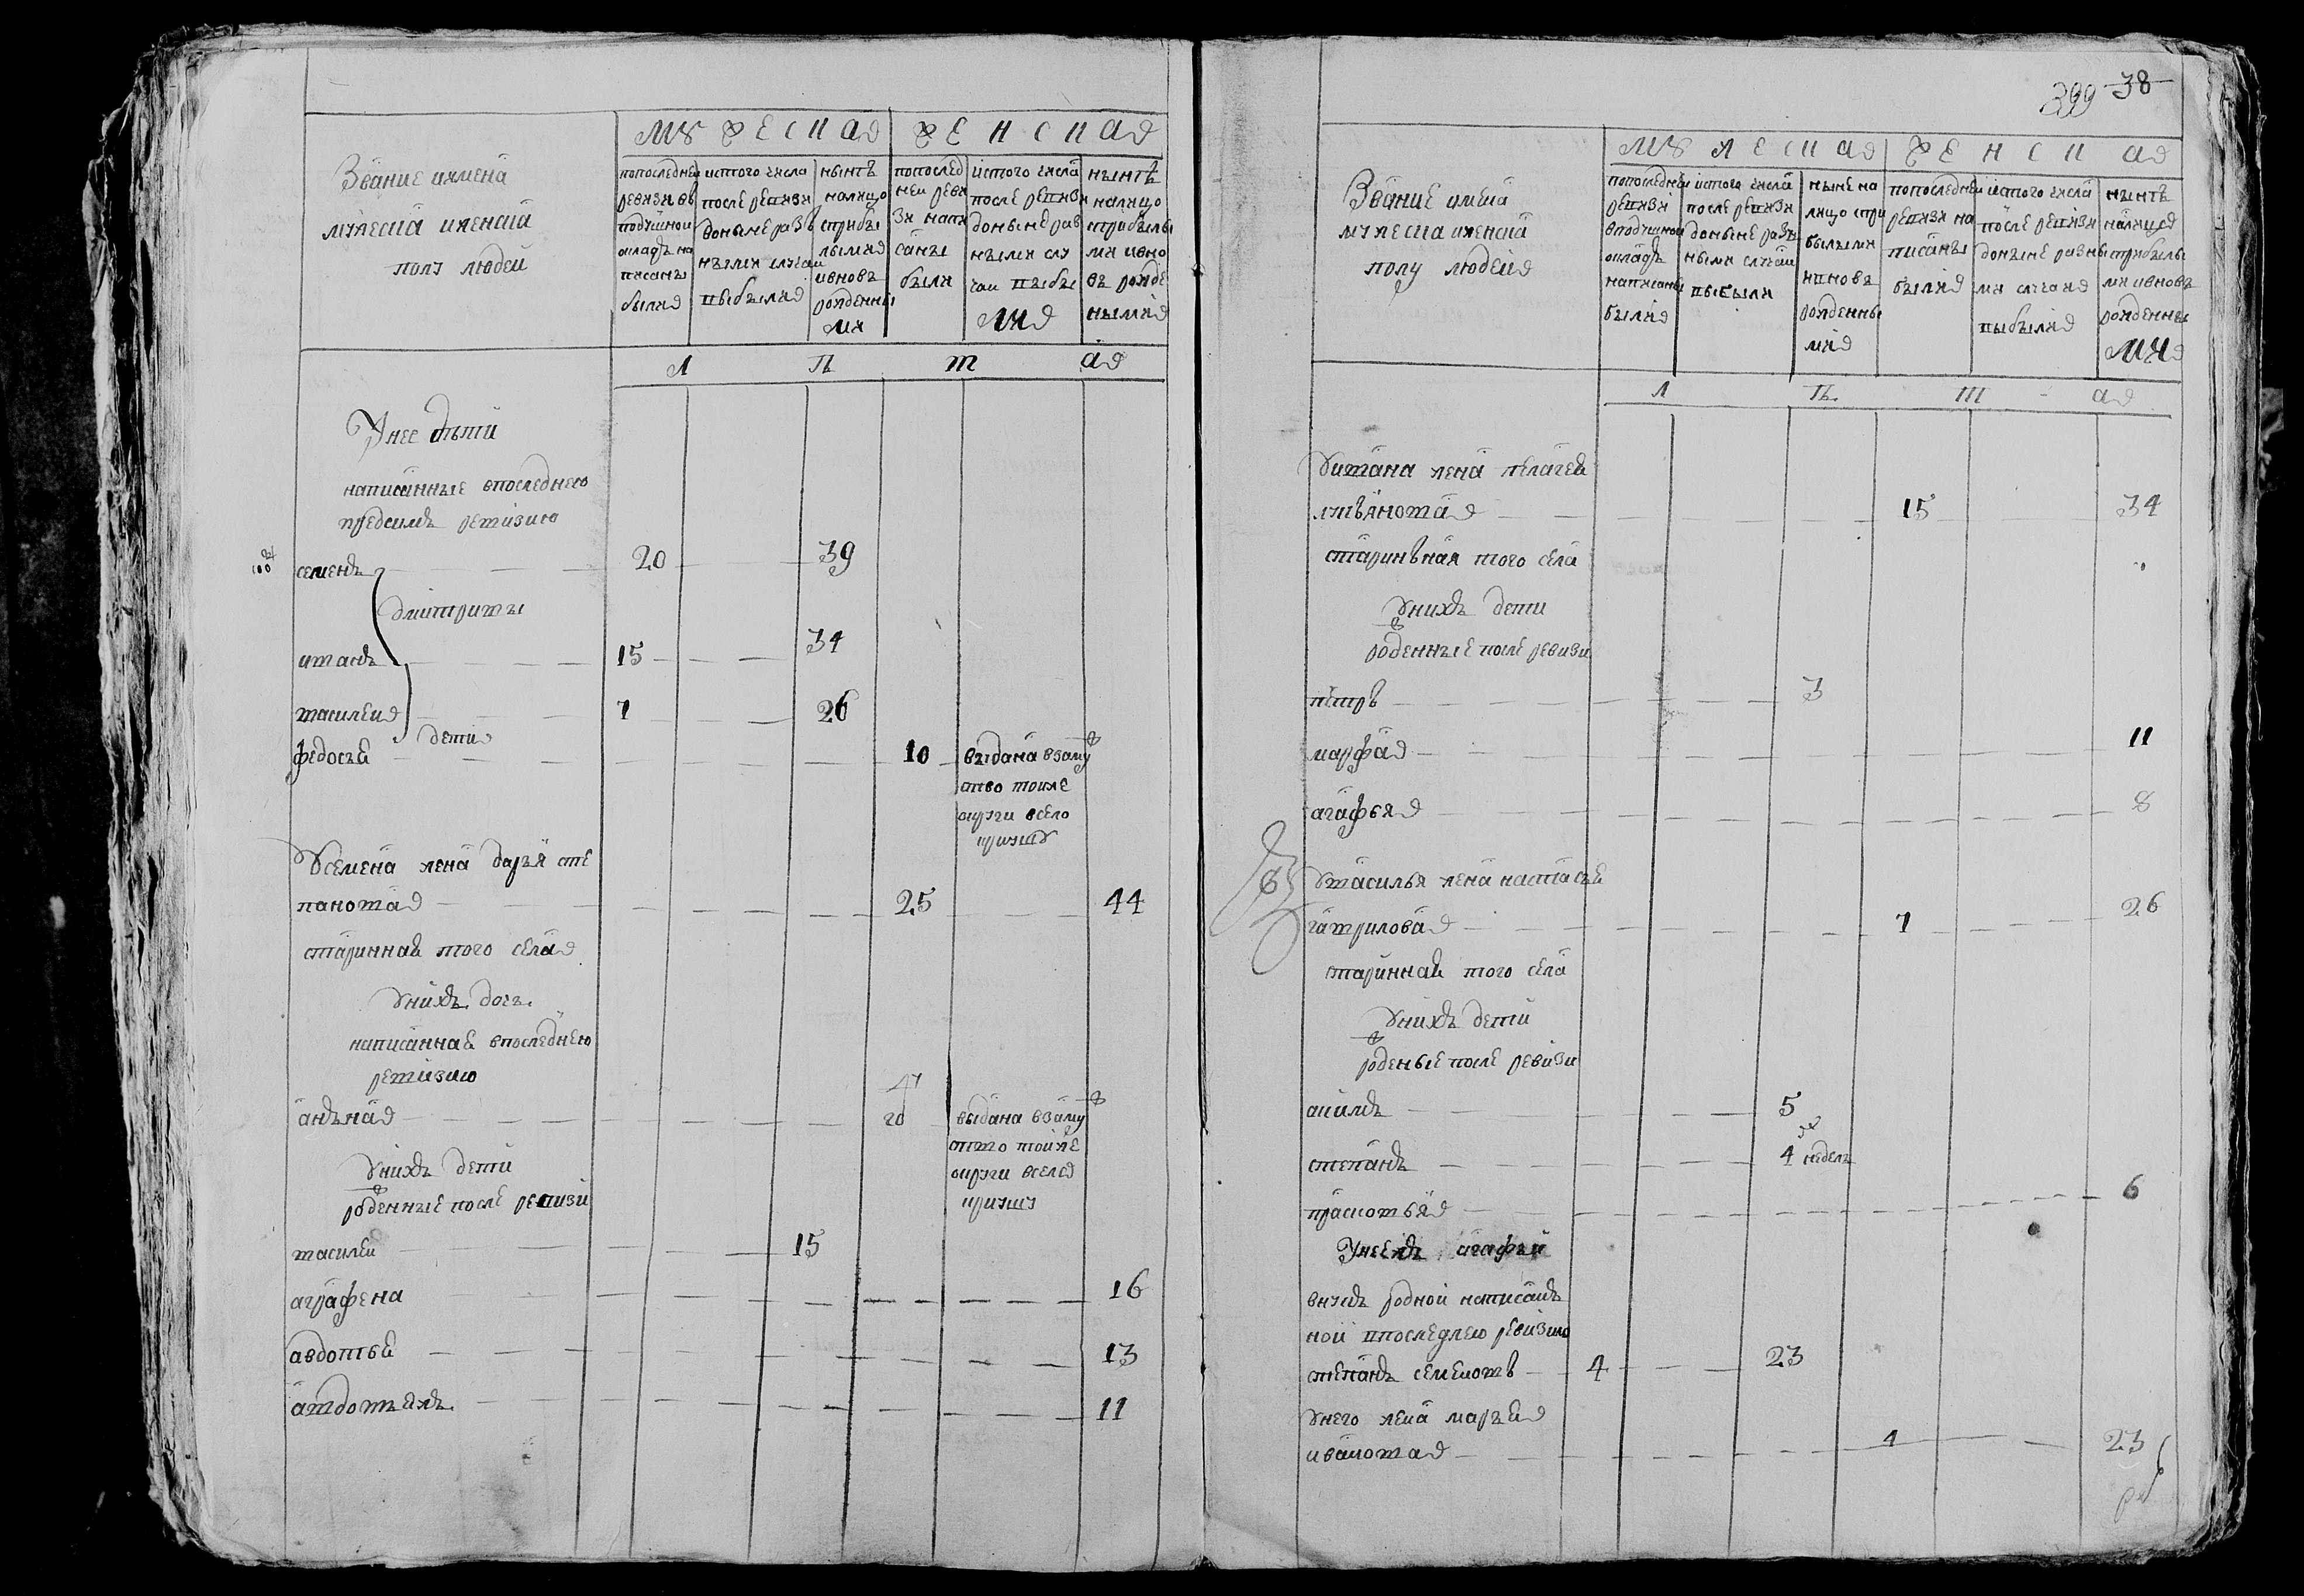 Звание имена
мужеска иженска
полу людей
мужеска женска
попоследней ревизи вподушной окладъ написаны были
истого числа после ревизи доныне разными случаи выбыли
нынѣ налицо сприбылыми ивновь рожденными
попоследней ревизи написаны были
истого числа после ревизи доныне разными случаи выбыли
нынѣ налицо сприбылыми ивновь рожденными
л ѣ т а
Унее дѣти
написанные впоследнею
предсимъ ревизию
семенъ 20 39
дмитривы
иванъ 15 34
василей 7 26
дети
федосье 10 выдана взаму
ство тоиже
округи всело
Усемена жена дарья сте
панова 25 44
старинная того села
Унихъ дочь
написанная впоследнею
ревизию
анъна 20 выдана взаму
ство тоиже
округи всело
Унихъ дети
роденные после ревизи
василеи 15
аграфена 16
авдотье 13
11
399 38
Звание имена
мужеска иженска
полу людей
мужеска женска
попоследней ревизи вподушной окладъ написаны были
истого числа после ревизи доныне разными случаи выбыли
ныне налицо сприбылыми ивновь рожденными
попоследней ревизи написаны были
истого числа после ревизи доныне разными случаи выбыли
нынѣ налицо сприбылыми ивновь рожденными
л ѣ т а
Уивана жена пелагея
лукьянова 15 34
старинъная того села
Унихъ дети
роденные после ревизи
петръ 3
марфа 11
агафья 8
Увасилья жена настасье
гаврилова 7 26
старинная того села
Унихъ дети
роденые после ревизи
акимъ 5
степанъ 4 недель
прасковья 6
Унеежъ агафьи
внукъ родной написанъ
ной впоследнею ревизию
степанъ семеновъ 4 23
Унего жена марья
иванова 4 23